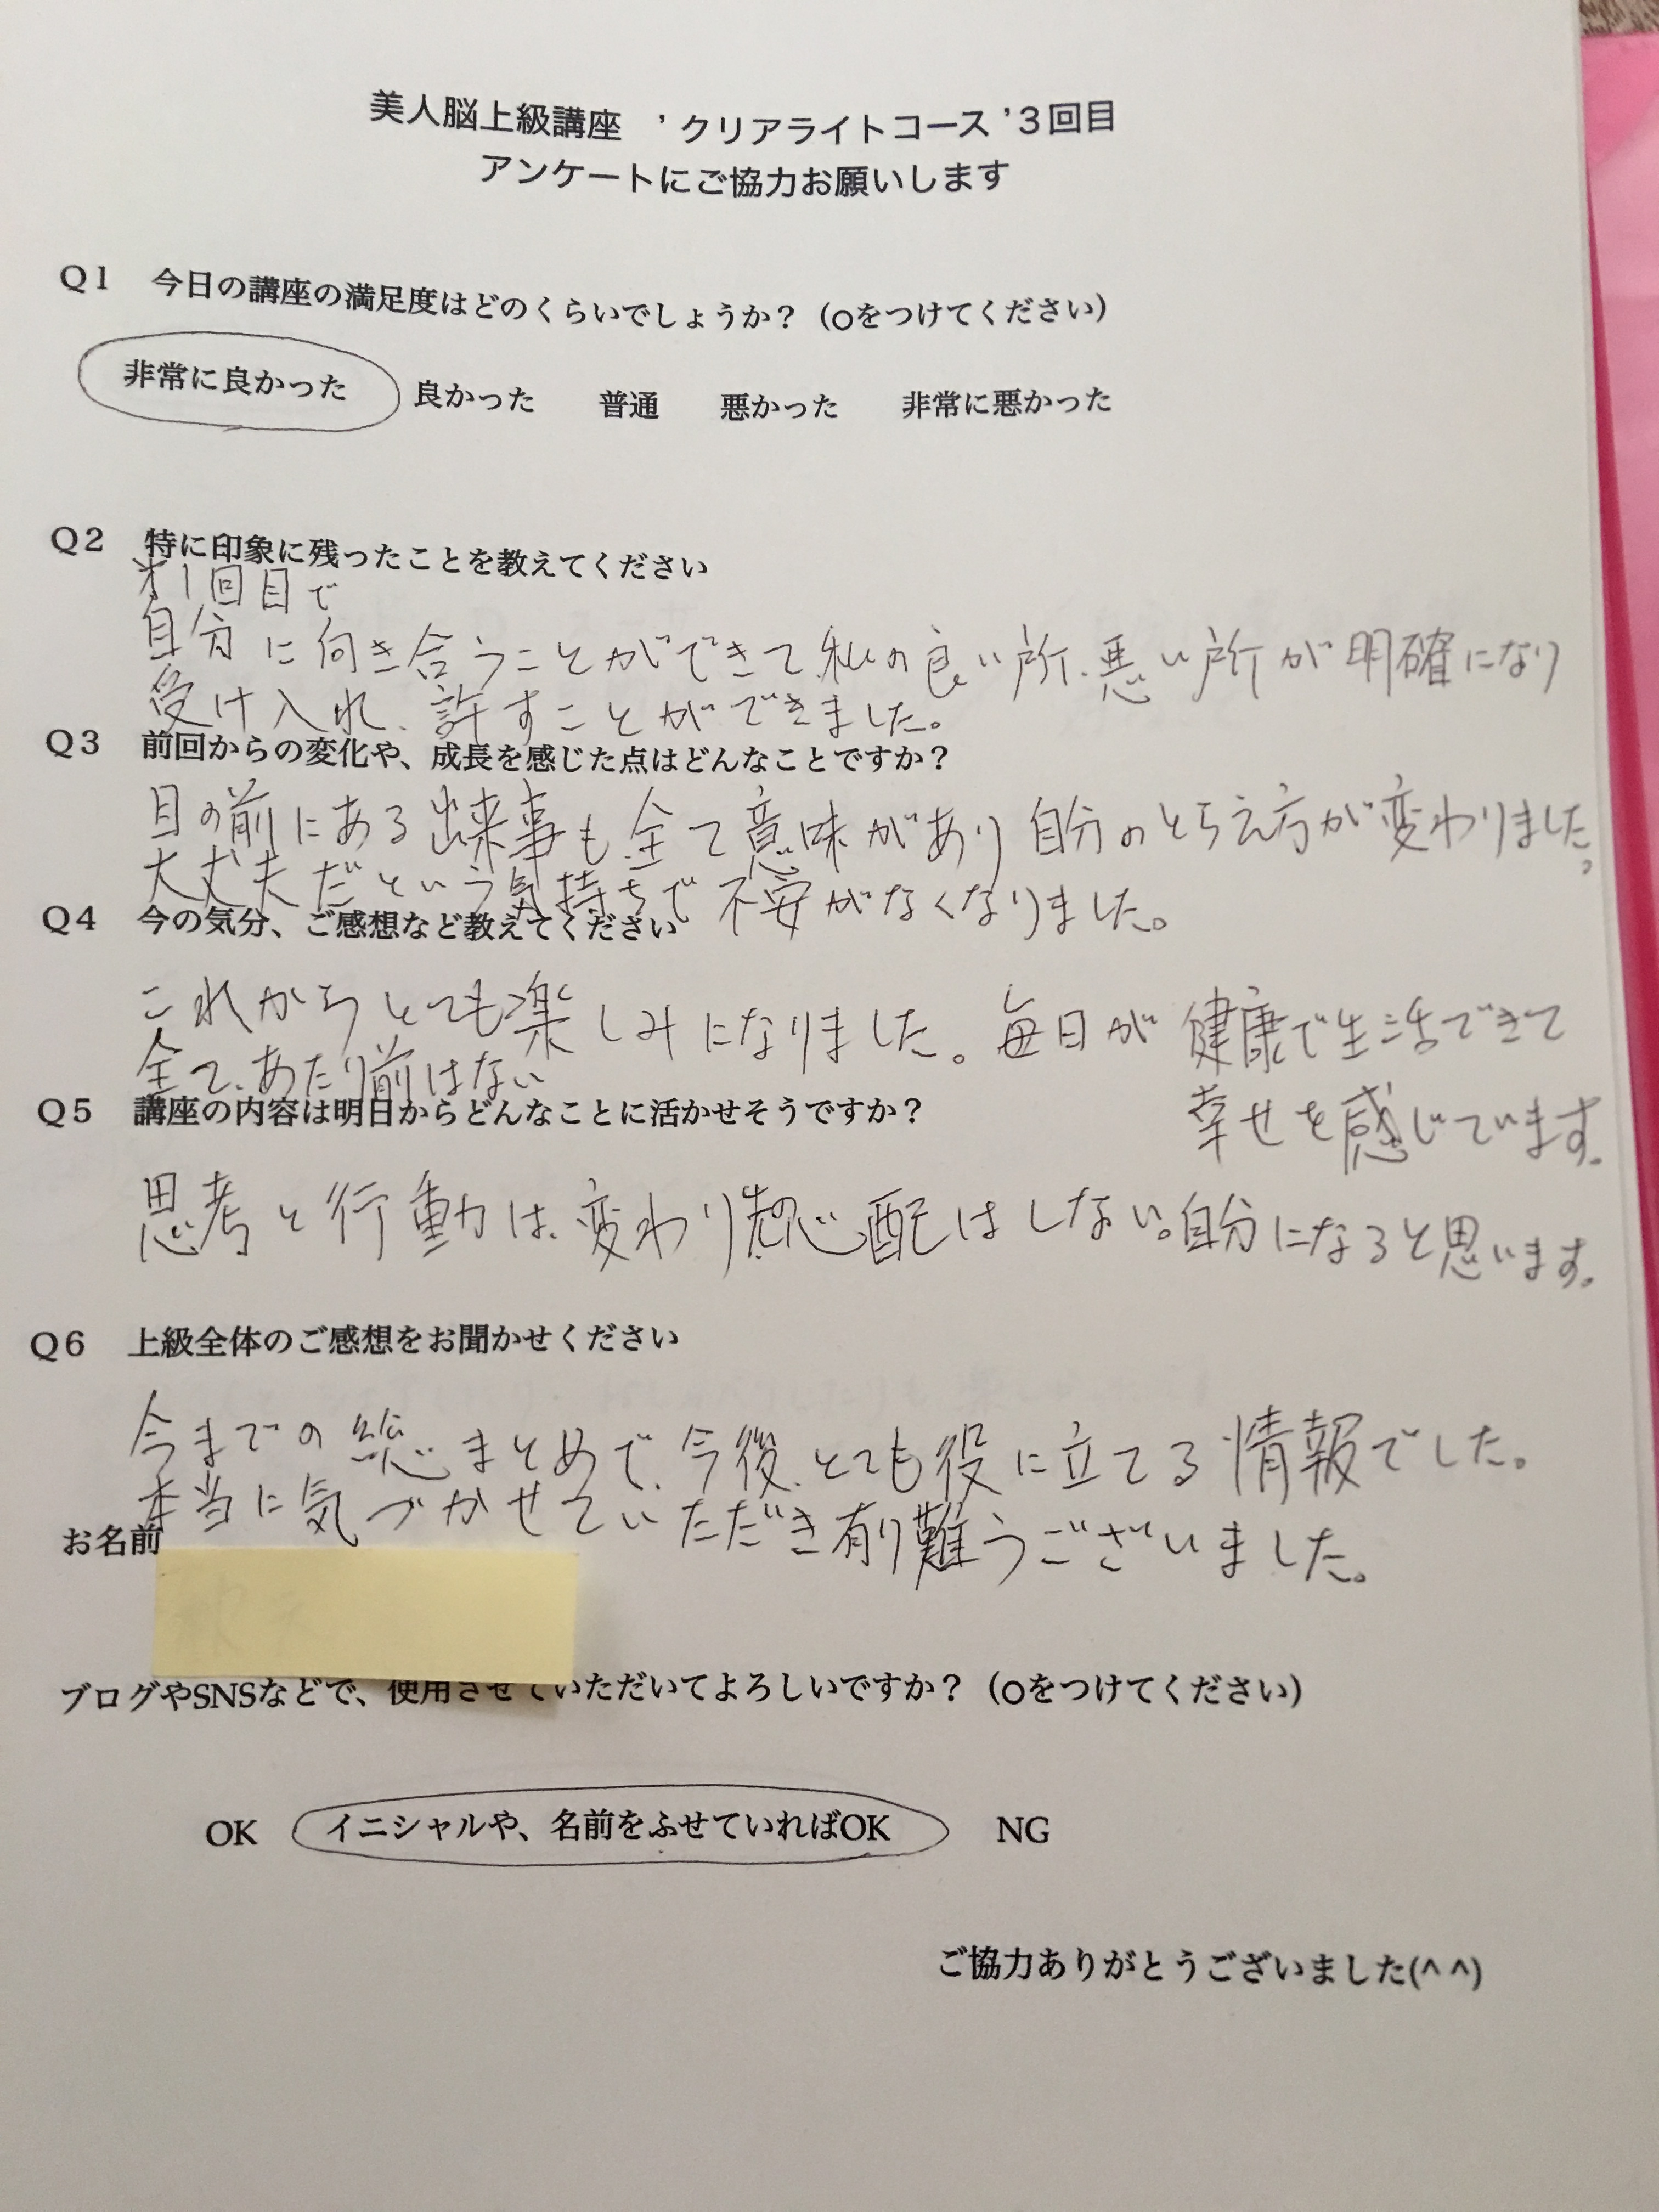 美人脳上級講座　’クリアライトコース’３回目
アンケートにご協力お願いします
Q１　今日の講座の満足度はどのくらいでしょうか？（○をつけてください）
非常に良かった　良かった　普通　悪かった　非常に悪かった
Q２　特に印象に残ったことを教えてください
才1回目で
自分に向き合うことができて、私の良い所、悪い所が明確になり
受け入れ、許すことができました。
Q３　前回からの変化や、成長を感じた点はどんなことですか？
目の前にある出来事も全て意味があり自分のとらえ方が変わりました。
大丈夫だという気持ちで不安がなくなりました。
Q４　今の気分、ご感想など教えてください
これからとても楽しみになりました。毎日が健康で生活できて
全て、あたり前はない
幸せを感じています。
Q５　講座の内容は明日からどんなことに活かせそうですか？
思考と行動は、変わり心配はしない。自分になると思います。
Q６　上級全体のご感想をお聞かせください
今までの総まとめで、今後、とても役に立てる情報でした。
本当に気づかせていただき有り難うございました。
お名前
ブログやSNSなどで、使用させていただいてよろしいですか？（○をつけてください）
OK　イニシャルや、名前をふせていればOK　NG
ご協力ありがとうございました(^ ^)